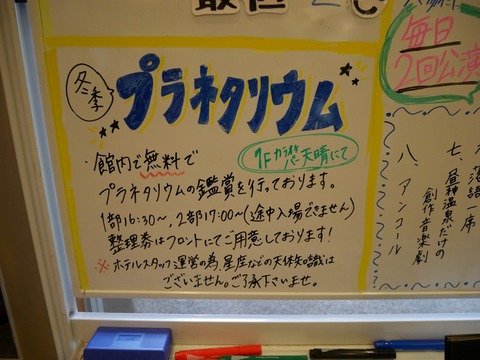 最低
冬季
プラネタリウム
館内で無料で
1Fカラオケ天晴にて
プラネタリウムの鑑賞を行っております。
1部16:30〜、2部17:00〜(途中入場できません)
整理券はフロントにてご用意しております!
※ホテルスタッフ運営の為、星座などの天体知識は
ございません。ご了承下さいませ。
毎日
2回公演
落語一席
七、昼神温泉だけの
創作音楽劇
八、アンコール